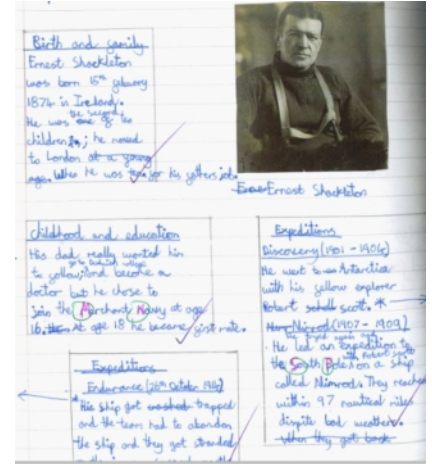 Birth and family
Ernest Shackleton
was born 15th febuary
1874 in Ireland.
He was the second of ten
children; he moved
to London at a young
age. When he was ten for his fathers job.
Ernest Shackleton
Childhood and education
His dad really wanted him
to follow and become a
doctor but he chose to
join the Merchant Navy at age
16. At age 18 he became first mate.
Expeditions
Discovery (1901 - 1904)
He went to Antartica
with his fellow explorer
Robert scott. *
Nimrod (1907 - 1909)
He tryed again and
He led an expedition to
with Robert scott
the South Pole on a ship
called Nimrod. They reached
within 97 nautical miles
dispite bad weather.
When they got back
Expeditions
Endurance (26th October 1914)
His ship got crashed trapped
and the team had to abandon
the ship and they got stranded